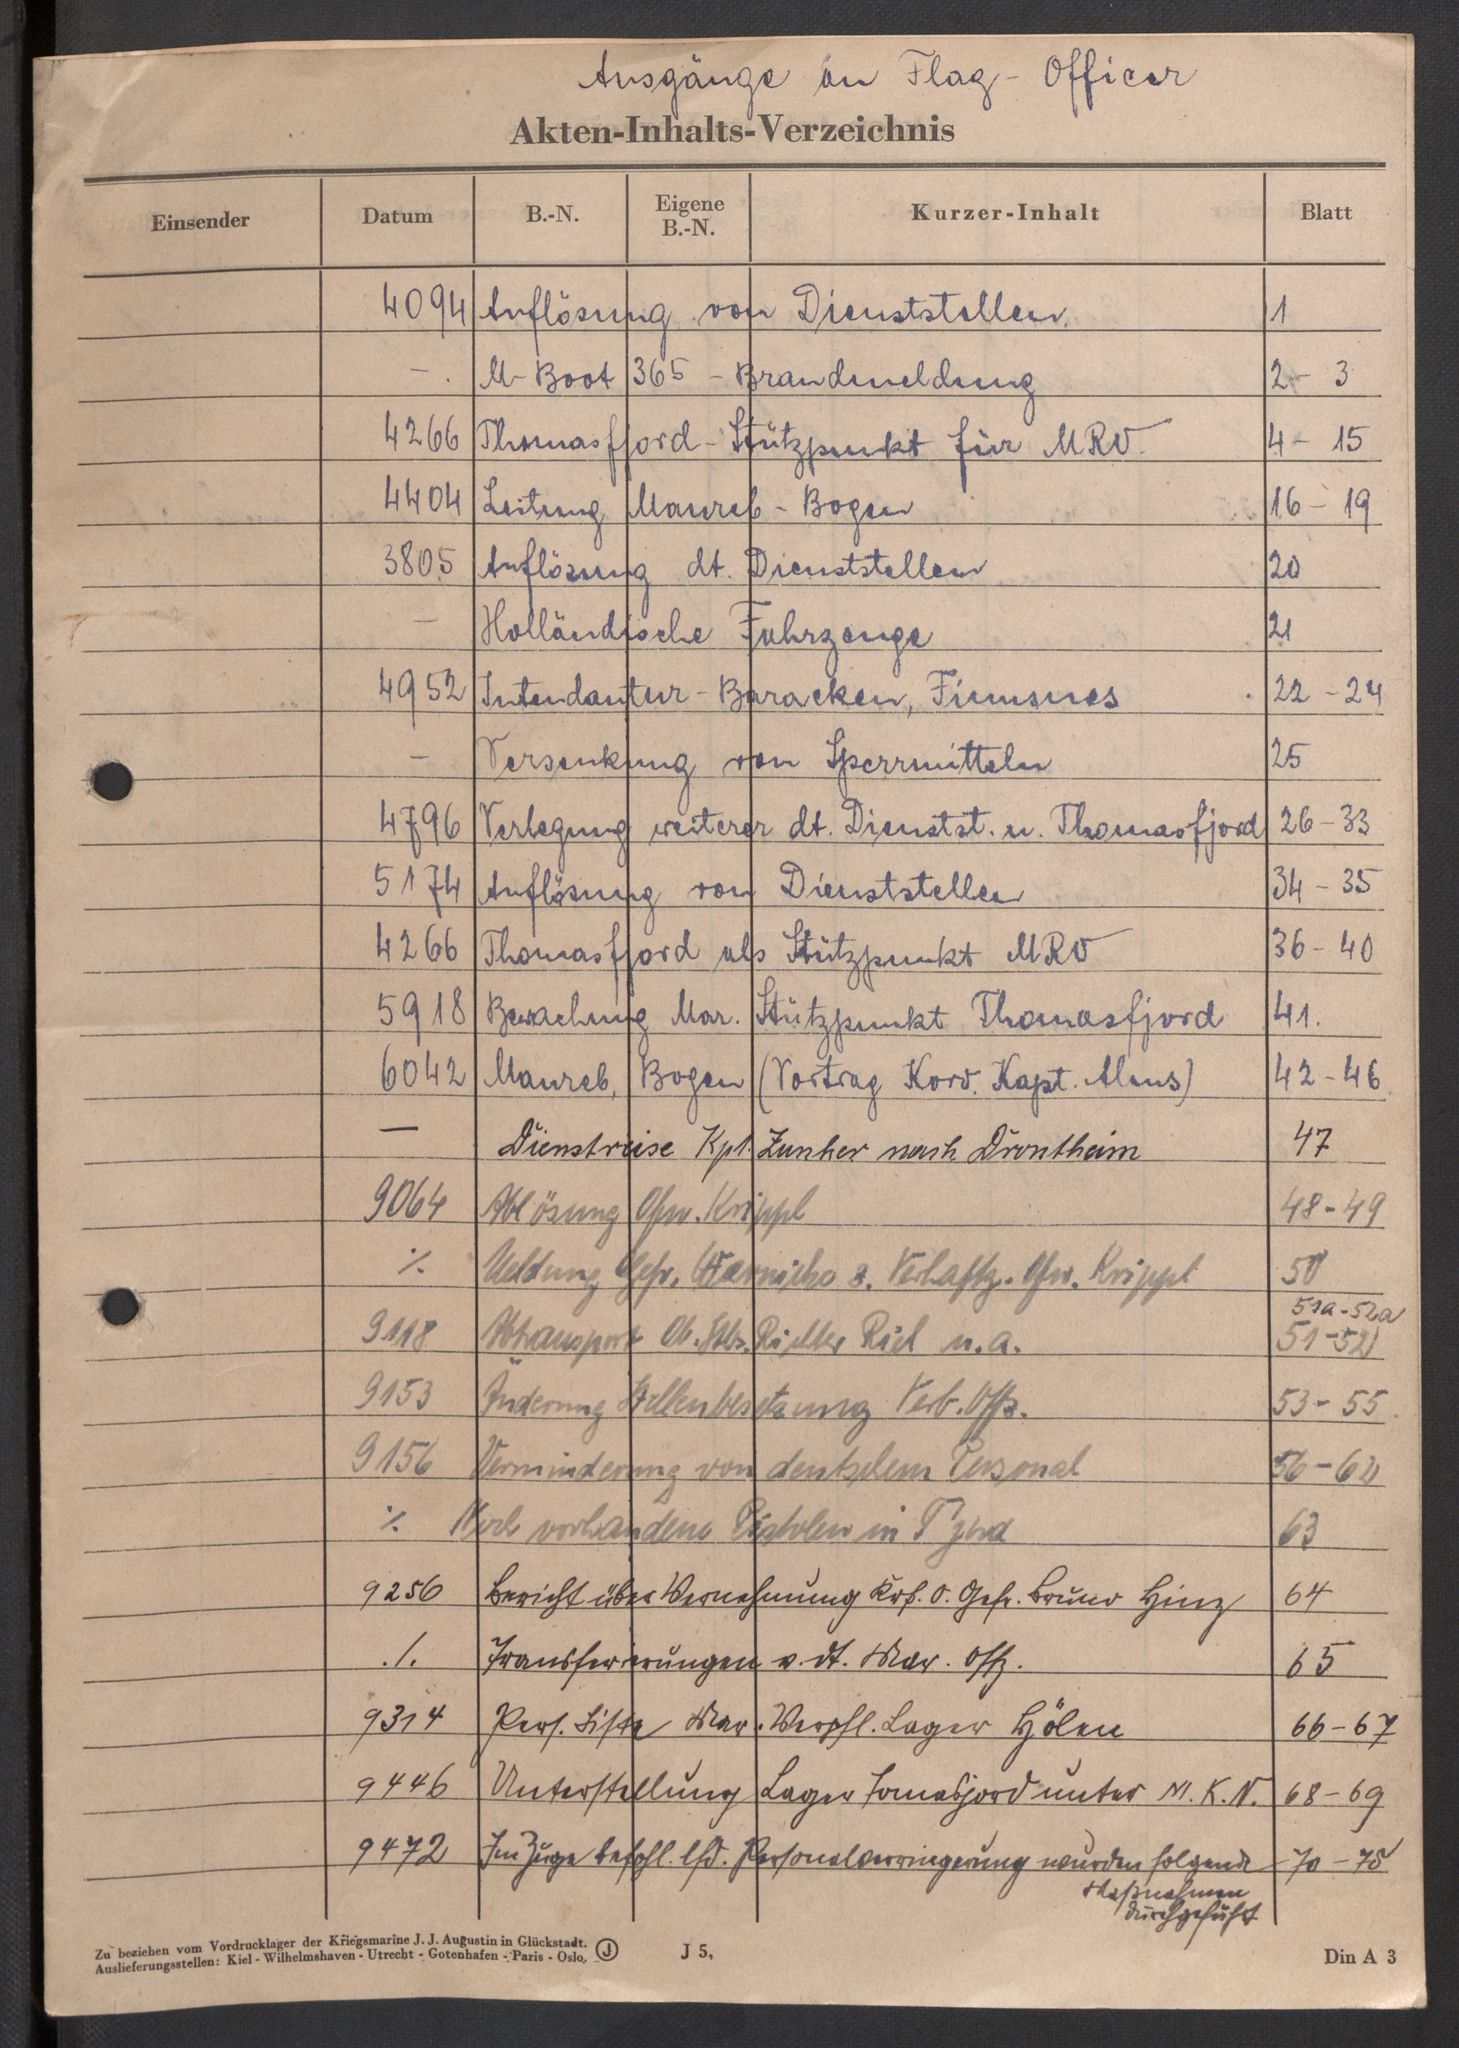 Ausgänge an Flag-Officer
Akten-Inhalts-Verzeichnis
Einsender Datum B.-N. Eigene B.-N. Kurzer-Inhalt Blatt
4094 Auflösung von Dienststellen 1
- M-Boot 365 - Brandmeldung 2-3
4266 Thomasfjord-Stützpunkt für MRV 4-15
4404 Leitung Maureb-Bogen 16-19
3805 Auflösung dt. Dienststellen 20
- Holländische Fahrzeuge 21
4952 Intendantur-Baracken, Finnsnes 22-24
- Versenkung von Sperrmitteln 25
4796 Verlegung weiterer dt. Dienstst. n. Thomasfjord 26-33
5174 Auflösung von Dienststellen 34-35
4266 Thomasfjord als Stützpunkt MRV 36-40
5918 Bewachung Mar. Stützpunkt Thomasfjord 41.
6042 Maureb, Bogen (Vortrag Korv. Kapt. Alens) 42-46
- Dienstreise Kpt. Zunker nach Drontheim 47
9064 Ablösung Ofw. Krippl 48-49
% Meldung Gefr. z. Verhaftg. Ofw. Krippl 50
51a-52a
9118 Abtransport Ob. Stbs. Richter Riel u.a. 51-52
9153 Änderung Stellenbesetzung Verb. Offz. 53-55
9156 Verminderung von deutschem Personal 56-62
% vorhandene Pistolen in 63
9256 Bericht über Vernehmung Krf. O. Gefr. Bruno Hinz 64
./. Transferierungen v. dt. Mar. Offz. 65
9314 Pers. Liste Mar. Verpfl. Lager Hölen 66-67
9446 Unterstellung Lager Tomasjord unter M.K.N. 68-69
9472 Im Zuge befohl. lfd. Personalverringerung wurden folgende 70-75
Maßnahmen
durchgeführt
Zu beziehen vom Vordrucklager der Kriegsmarine J. J. Augustin in Glückstadt.
Auslieferungsstellen: Kiel - Wilhelmshaven - Utrecht - Gotenhafen - Paris - Oslo. J J 5, Din A 3